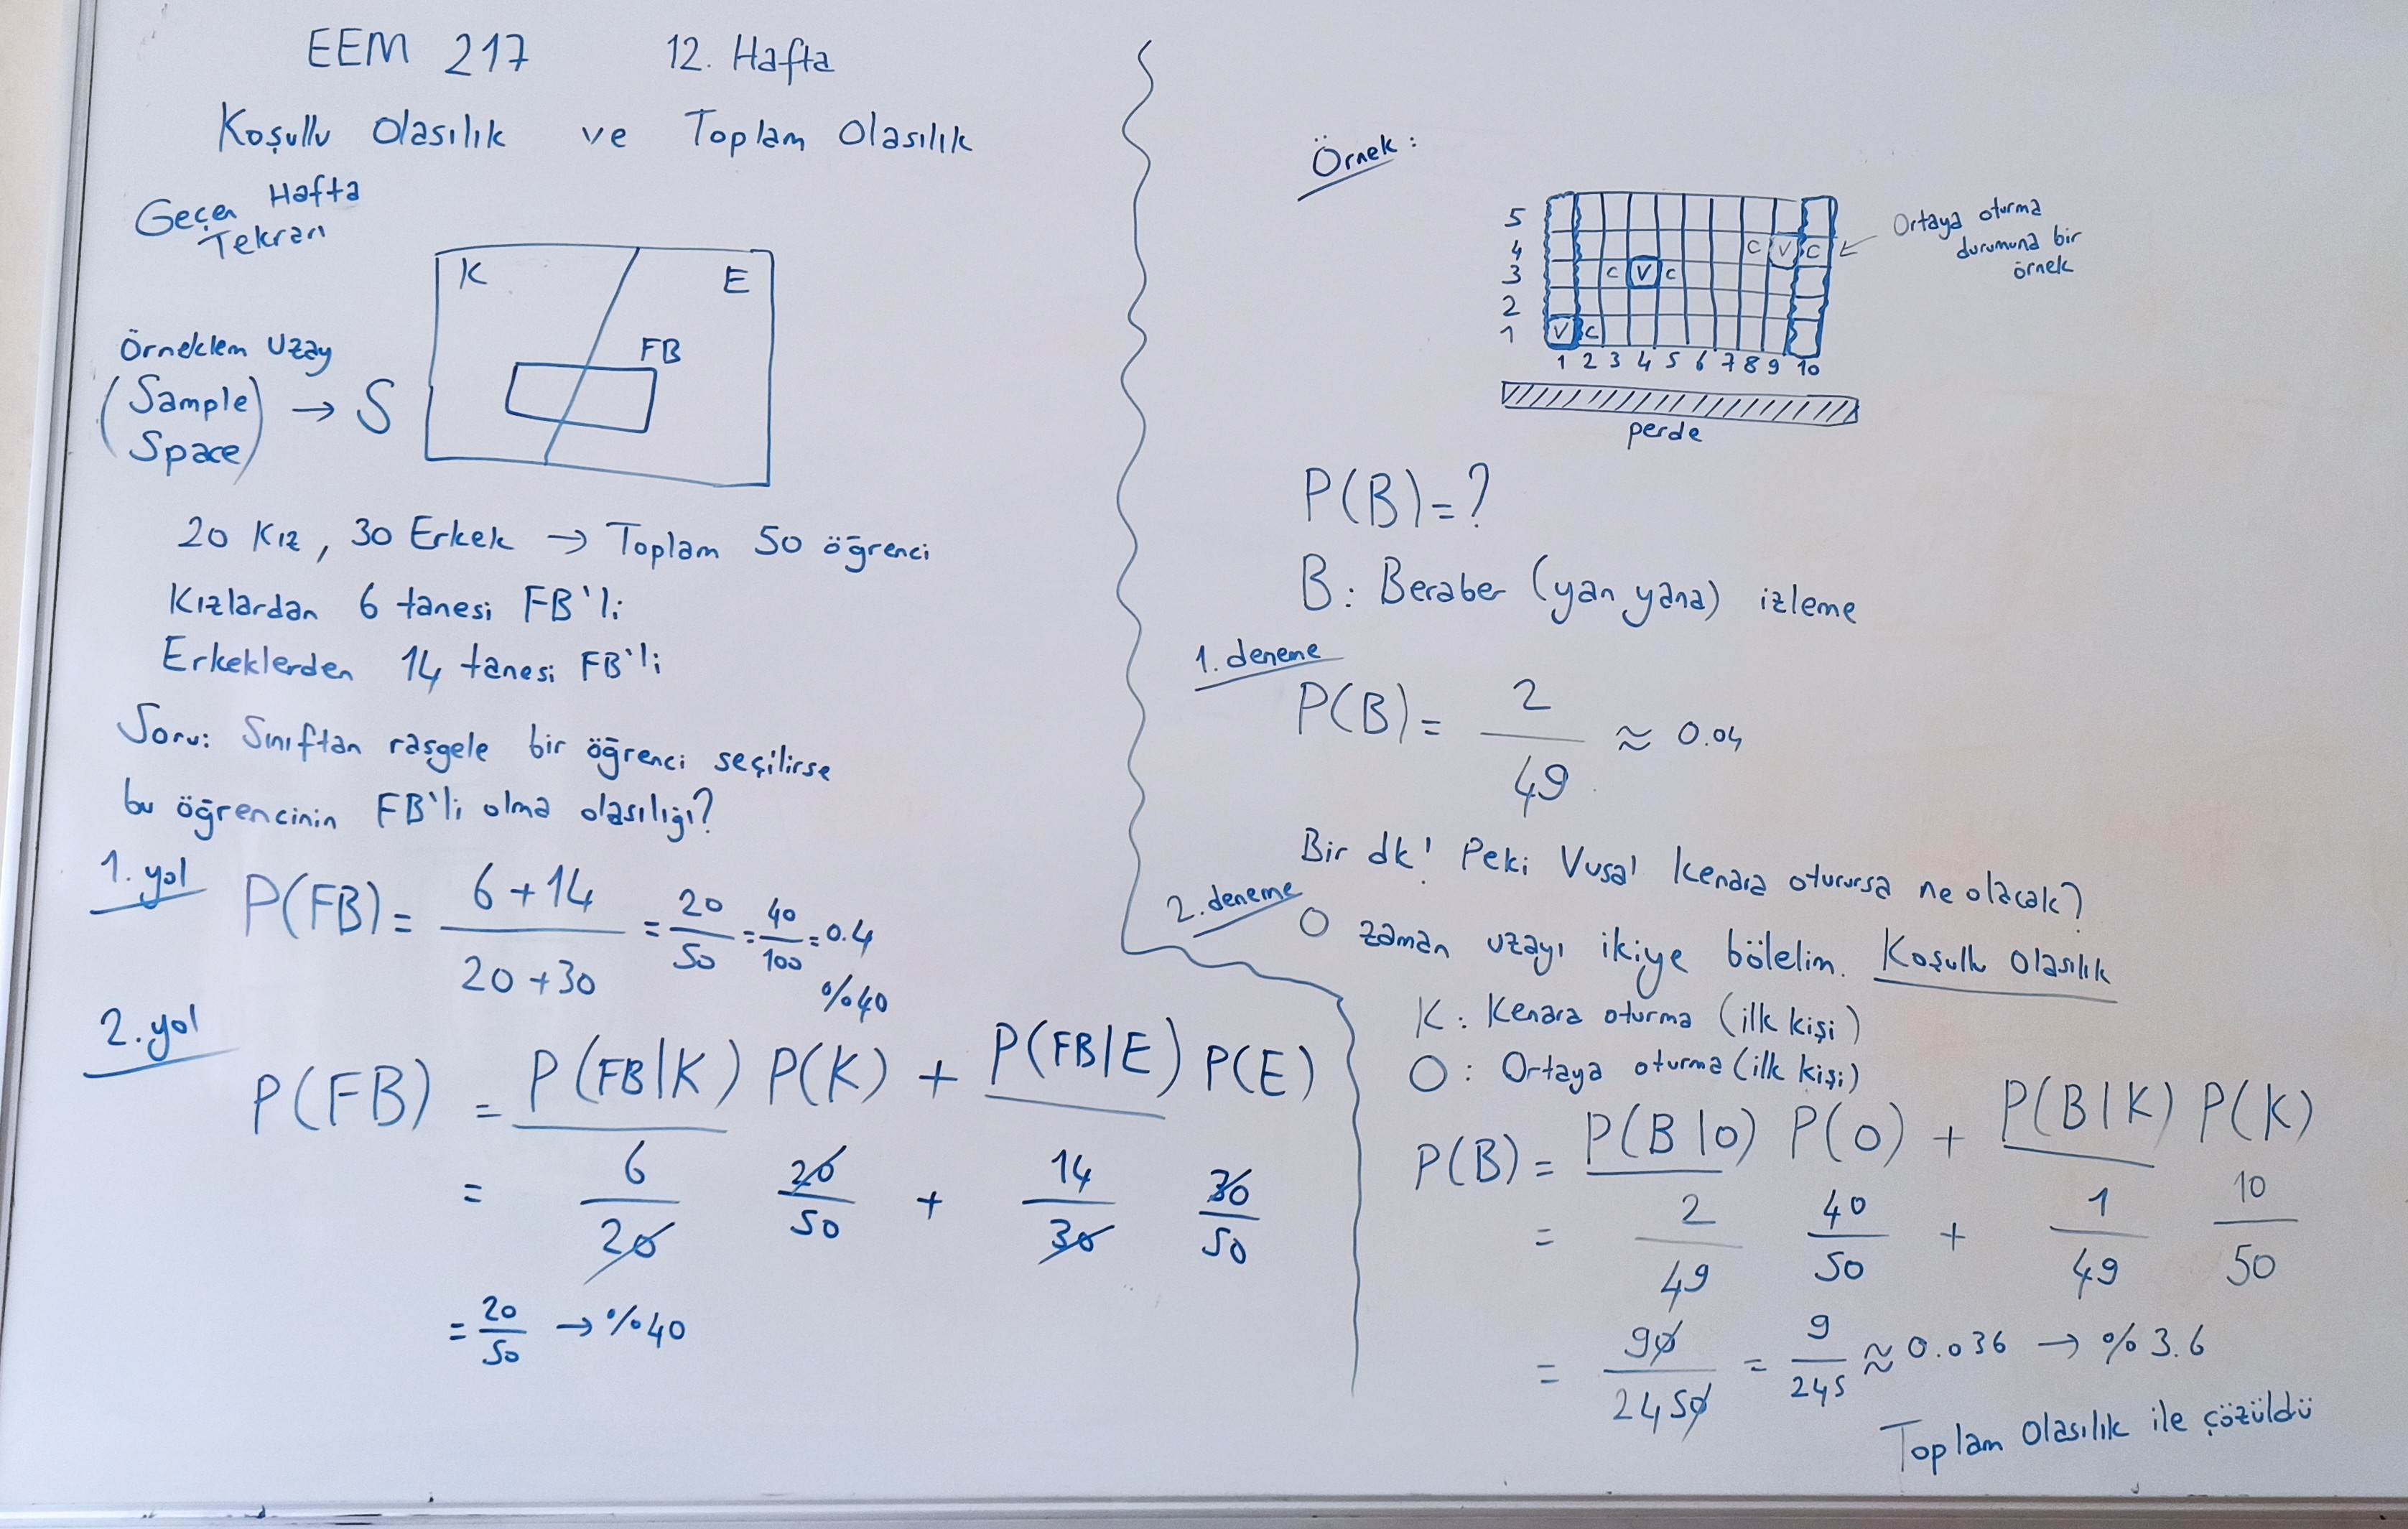 EEM 217 12. Hafta
Koşullu Olasılık ve Toplam Olasılık
Geçen Hafta
Tekrarı
K E
FB
Örneklem Uzay
(Sample Space) → S
20 Kız, 30 Erkek → Toplam 50 öğrenci
Kızlardan 6 tanesi FB'li
Erkeklerden 14 tanesi FB'li
Soru: Sınıftan rasgele bir öğrenci seçilirse
bu öğrencinin FB'li olma olasılığı?
1. yol P(FB) = (6+14)/(20+30) = 20/50 = 40/100 = 0.4
%40
2. yol
P(FB) = P(FB|K) P(K) + P(FB|E) P(E)
= 6/20 20/50 + 14/30 30/50
= 20/50 → %40
Örnek:
5
4 C V C
3 C V C
2
1 V C
1 2 3 4 5 6 7 8 9 10
perde
Ortaya oturma
durumuna bir
örnek
P(B) = ?
B: Beraber (yan yana) izleme
1. deneme
P(B) = 2/49 ≈ 0.04
Bir dk! Peki Vusal kenara oturursa ne olacak?
2. deneme O zaman uzayı ikiye bölelim. Koşullu Olasılık
K: Kenara oturma (ilk kişi)
O: Ortaya oturma (ilk kişi)
P(B) = P(B|O) P(O) + P(B|K) P(K)
= 2/49 40/50 + 1/49 10/50
= 90/2450 = 9/245 ≈ 0.036 → %3.6
Toplam Olasılık ile çözüldü